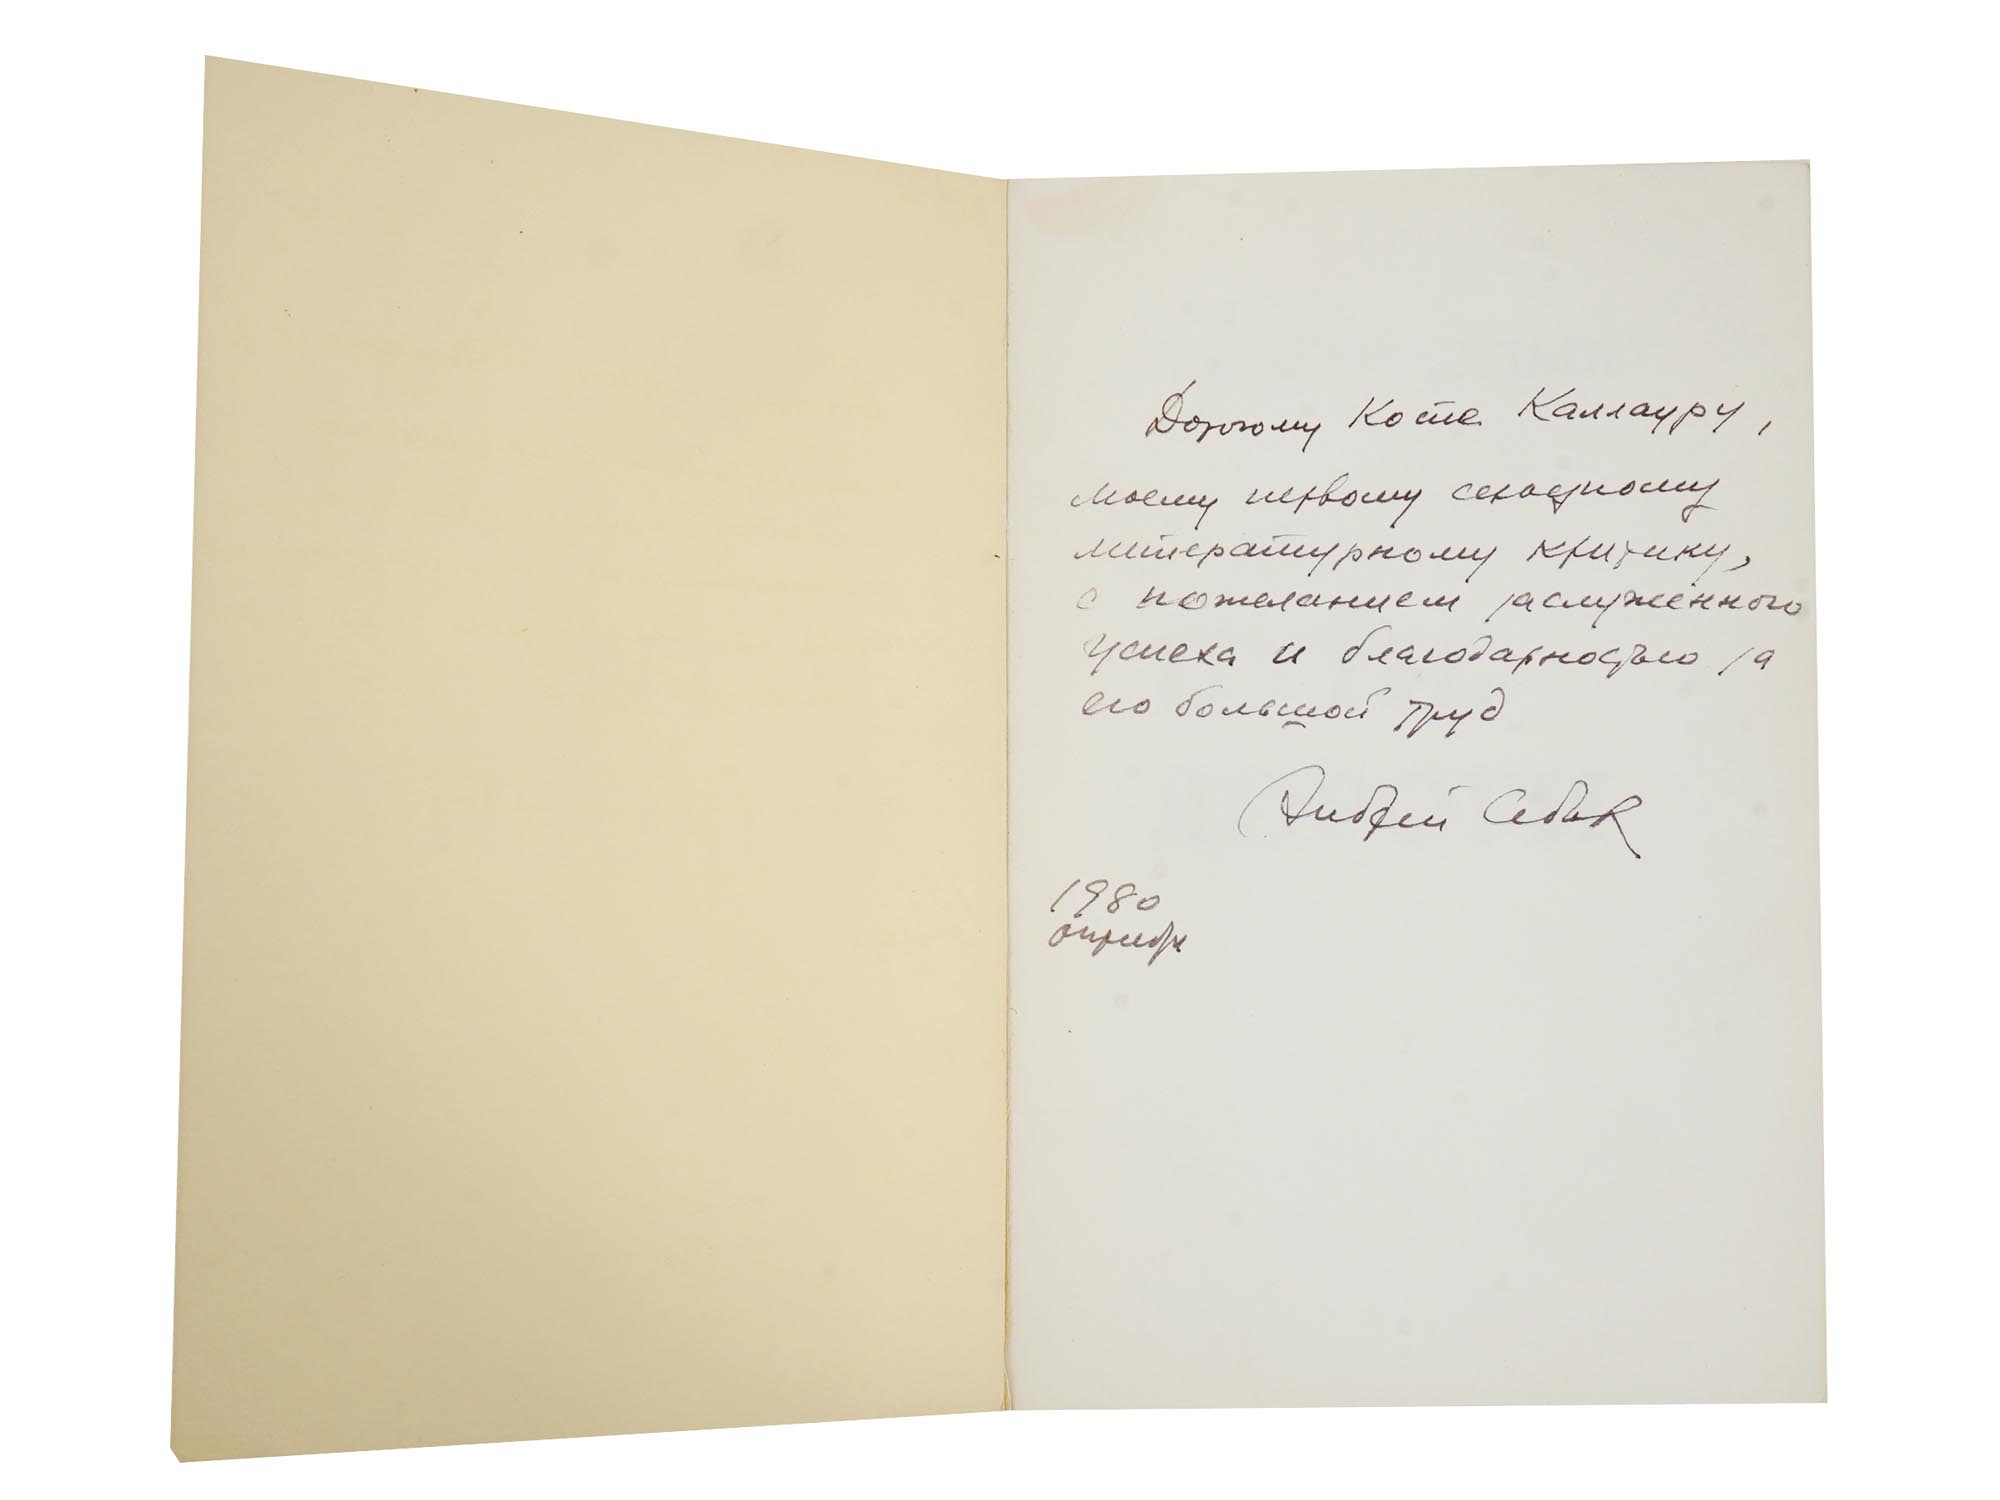 Дорогому Косте Каллауру,
моему первому западному
литературному критику,
с пожеланием заслуженного
успеха и благодарностью за
его большой труд
Андрей Седых
1980
октябрь